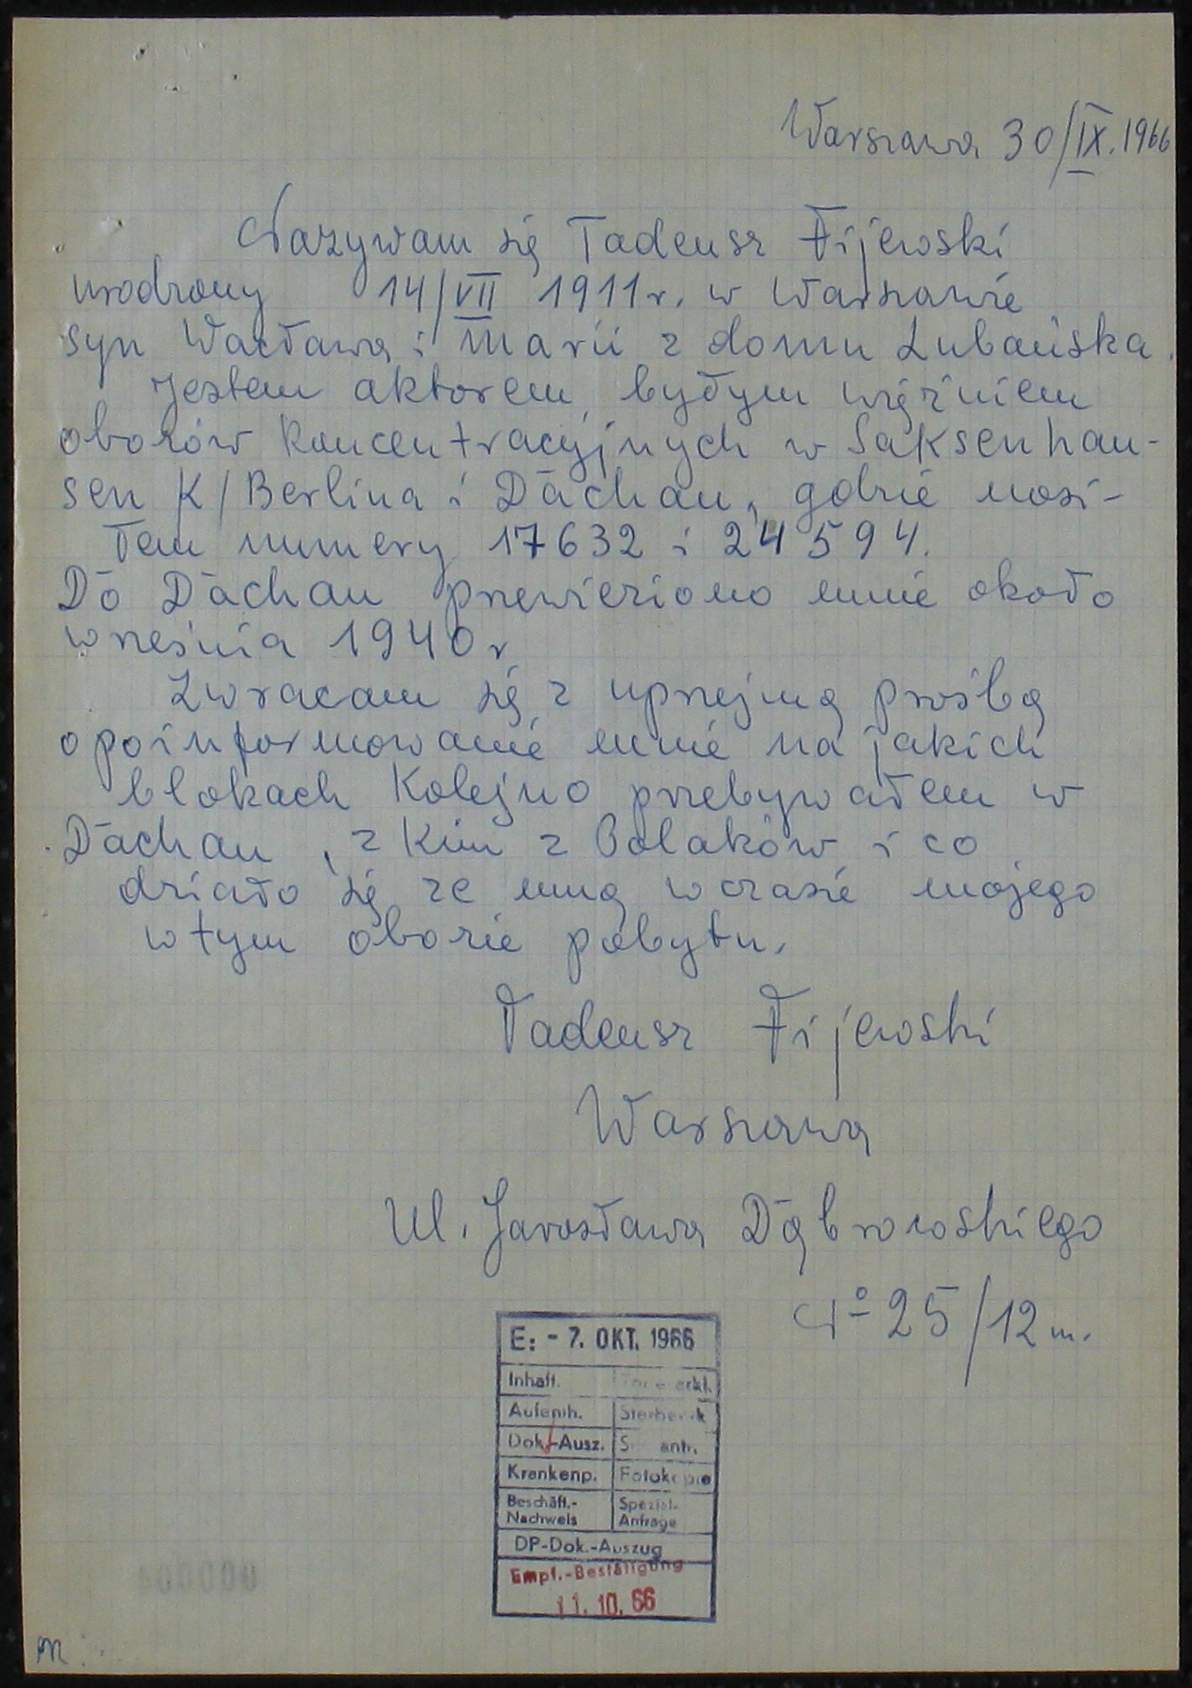 Warszawa 30/IX.1966
Nazywam się Tadeusz Fijewski
urodzony 14/VII 1911r. w Warszawie
syn Wacława i Marii z domu Lubańska.
Jestem aktorem, byłym więźniem
obozów koncentracyjnych w Saksenhau-
sen k/Berlina i Dachau, gdzie nosi-
łem numery 17632 i 24594.
Do Dachau przewieziono mnie około
września 1940 r
Zwracam się z uprzejmą prośbą
o poinformowanie mnie na jakich
blokach kolejno przebywałem w
Dachau, z kim z Polaków i co
działo się ze mną w czasie mojego
w tym obozie pobytu.
Tadeusz Fijewski
Warszawa
Ul. Jarosława Dąbrowskiego
No 25/12 m.
E: - 7. OKT. 1966
Inhaft.
Aufenth.
Dok.-Ausz.
Krankenp. Fotokopie
Beschäft.- Spezial-
Nachweis Anfrage
DP-Dok.-Auszug
Empf.-Bestätigung
11. 10. 66
000000